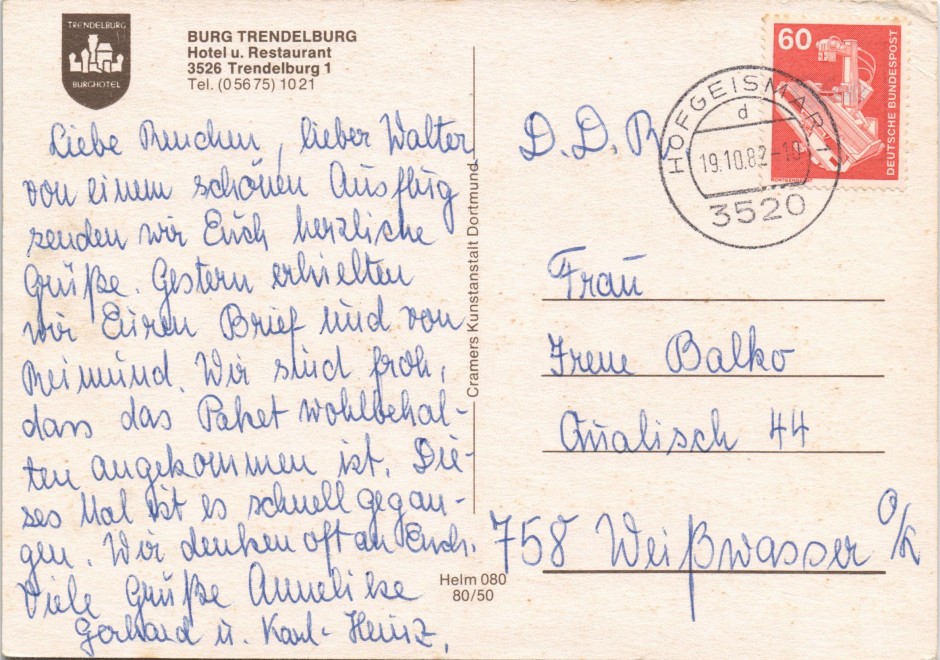 TRENDELBURG
BURGHOTEL
BURG TRENDELBURG
Hotel u. Restaurant
3526 Trendelburg 1
Tel. (0 56 75) 10 21
Liebe Renchen, lieber Walter
von einem schönen Ausflug
senden wir Euch herzliche
Grüße. Gestern erhielten
wir Euren Brief und von
Reimund. Wir sind froh,
dass das Paket wohlbehal-
ten angekommen ist. Die-
ses Mal ist es schnell gegan-
gen. Wir denken oft an Euch.
Viele Grüße Annelike
Gerhard u. Karl-Heinz,
Cramers Kunstanstalt Dortmund
Helm 080
80/50
60
DEUTSCHE BUNDESPOST
HOFGEISMAR 1
d
19.10.82
3520
D.D.R
Frau
Irene Balko
Qualisch 44
758 Weißwasser O/L